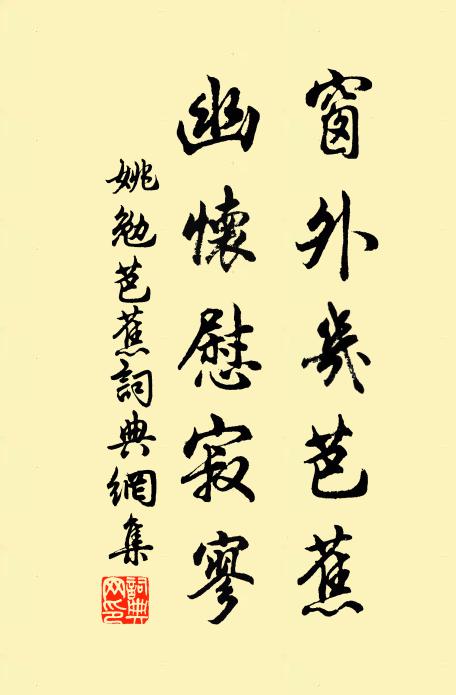 窗外幾芭蕉
幽懷慰寂寥
姚勉芭蕉詞典網集
詞典網印